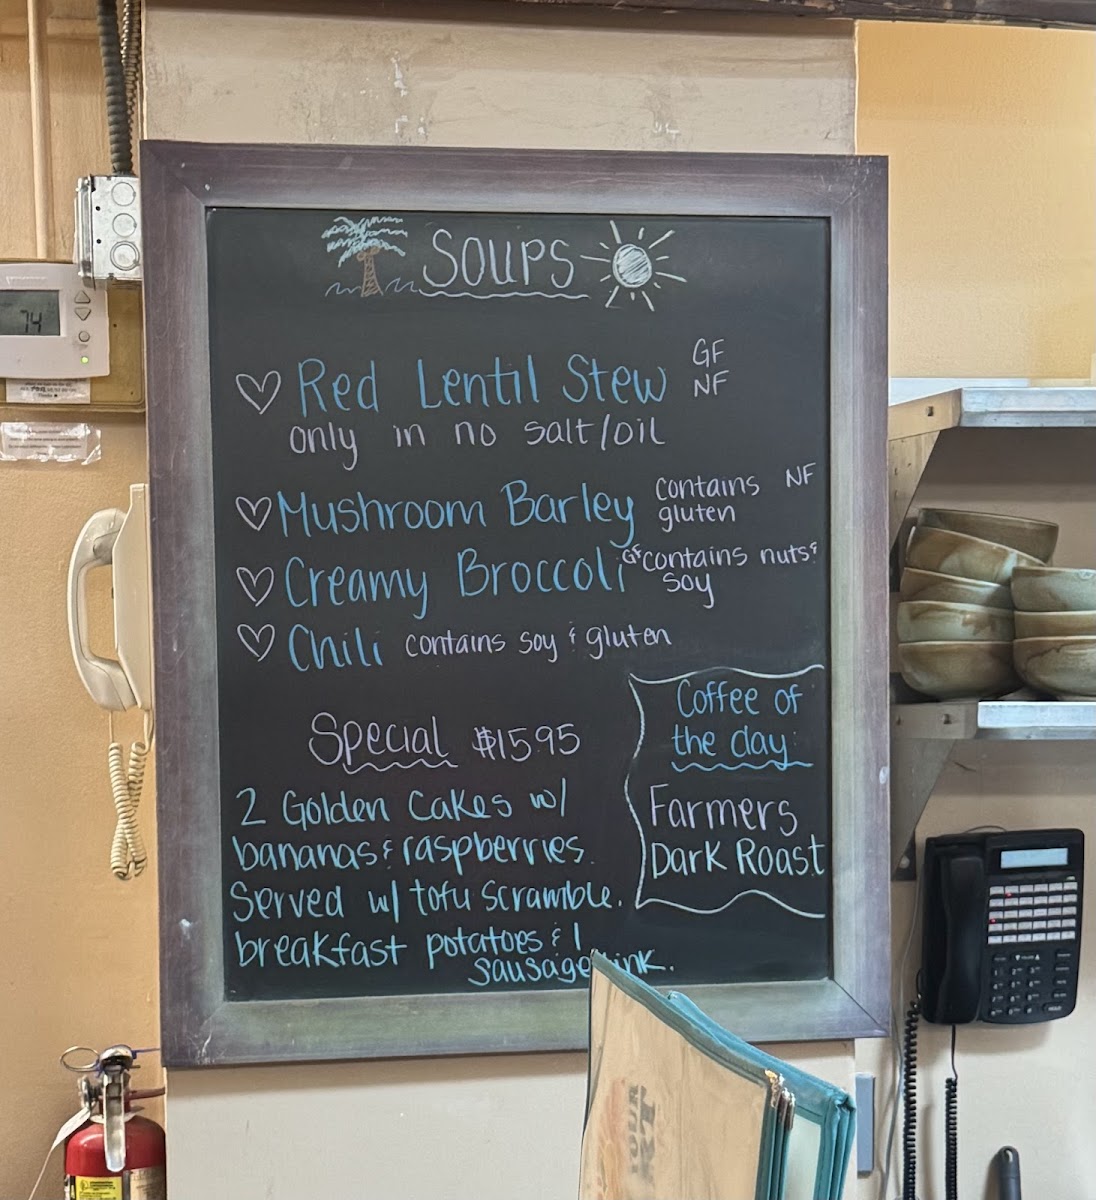 SOUPS
Red Lentil Stew GF
NF
only in no salt/oil
Mushroom Barley contains NF
gluten
Creamy Broccoli GF contains nuts &
soy
Chili contains soy & gluten
Special $15.95
2 Golden Cakes w/
bananas & raspberries.
Served w/ tofu scramble.
breakfast potatoes & 1
sausage ink.
Coffee of
the day:
Farmers
Dark Roast
74
YOUR